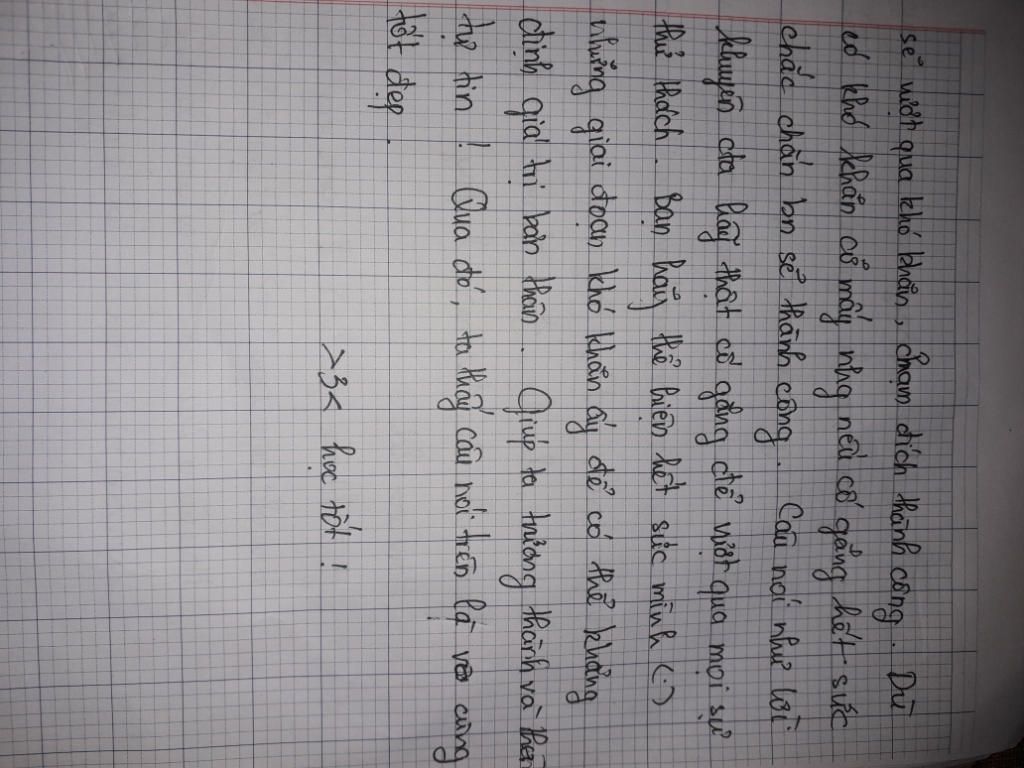 sẽ vượt qua khó khăn, chạm đích thành công. Dù
có khó khăn cỡ mấy nhg nếu cố gắng hết sức
chắc chắn bn sẽ thành công. Câu nói như lời
khuyên ta hãy thật cố gắng để vượt qua mọi sự
thử thách. Bạn hãy thể hiện hết sức mình (.)
những giai đoạn khó khăn ấy để có thể khẳng
định giá trị bản thân. Giúp ta trưởng thành và
tự tin ! Qua đó, ta thấy câu nói trên là vô cùng
tốt đẹp.
>3< học tốt !